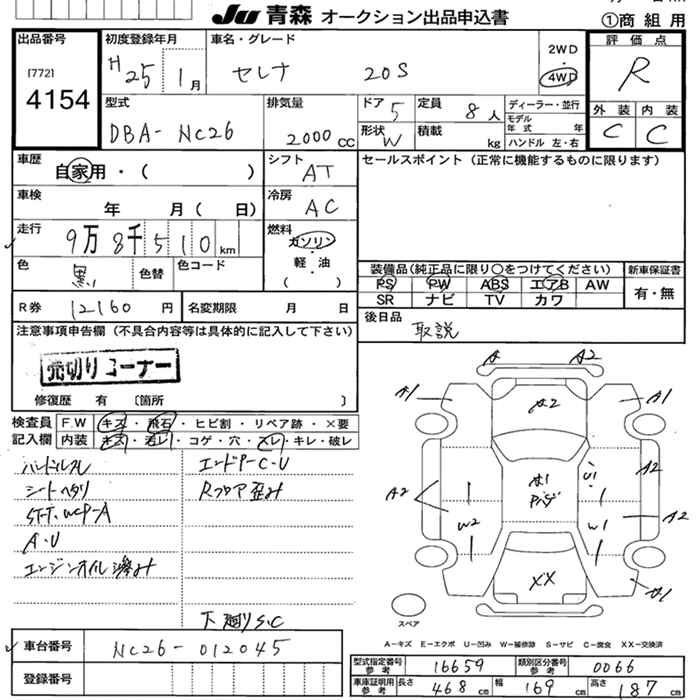 JU 青森 オークション出品申込書
①商組用
出品番号
[772]
4154
初度登録年月
H25 1月
車名・グレード
セレナ 20S
2WD
4WD
評価点
R
型式
DBA-NC26
排気量
2000 CC
ドア 5
形状 W
定員 8人
積載 kg
ディーラー・並行
モデル年式 年
ハンドル 左・右
外装 内装
C C
車歴
自家用・( )
シフト
AT
セールスポイント (正常に機能するものに限ります)
車検
年 月( 日)
冷房
AC
走行
9万8千510km
燃料
ガソリン
軽油
( )
色
黒
色替
色コード
装備品(純正品に限り○をつけてください)
新車保証書
PS PW ABS エアB AW
SR ナビ TV カワ
有・無
R券 12160円
名変期限 月 日
後日品
取説
注意事項申告欄 (不具合内容等は具体的に記入して下さい)
売切りコーナー
修復歴 有 〔箇所 〕
検査員
記入欄
F.W キズ・飛石・ヒビ割・リペア跡・×要
内装 キズ・若レ・コゲ・穴・スレ・キレ・破レ
ハンドルスレ
シートヘタリ
A・U
エンジンオイル滲み
Rフロア歪み
下廻りS.C
A A2
A1 A2 A1
A2 A1 U1 A2
W2 W1 A2
XX A1
スペア
A-キズ E-エクボ U-凹み W-補修跡 S-サビ C-腐食 XX-交換済
車台番号
NC26-012045
登録番号
型式指定番号参考 16659
類別区分番号参考 0066
車庫証明用参考 長さ 468cm 幅 169cm 高さ 187cm